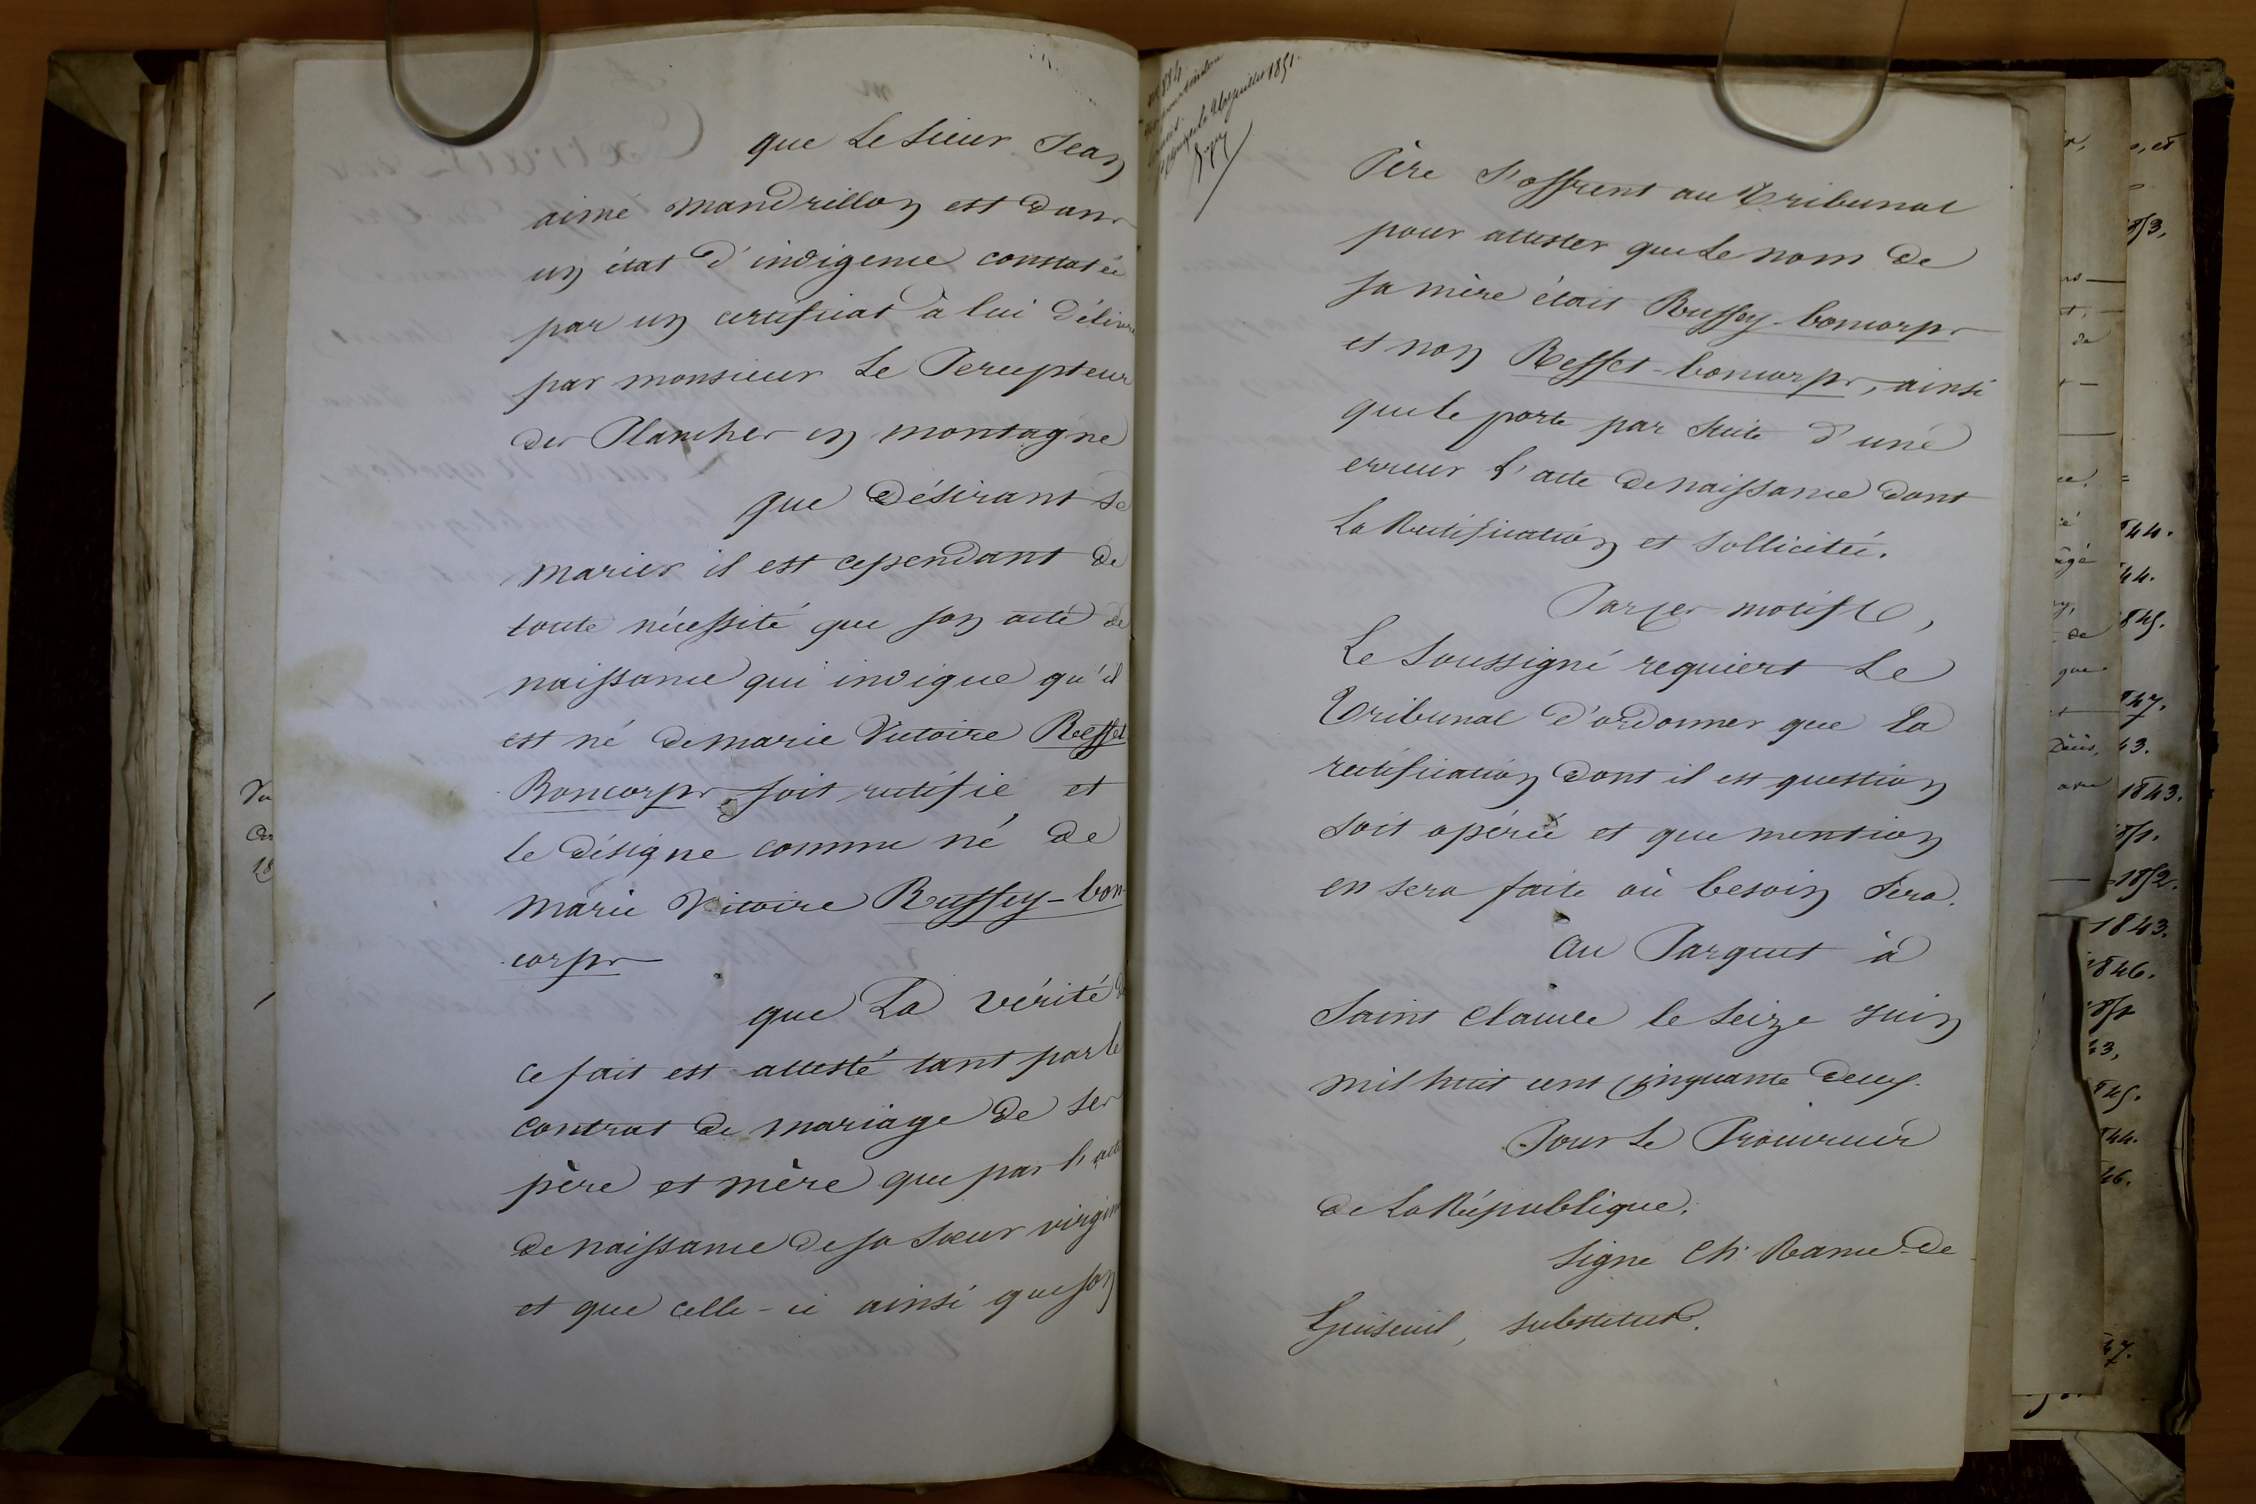 que le sieur Jean
aimé mandrillon est dans
un état d'indigence constatée
par un certificat à lui délivré
par monsieur le Percepteur
des Planches en montagne
que désirant se
marier il est cependant de
toute nécessité que son acte de
naissance qui indique qu'il
est né de marie Victoire Reffet
Boncorps, soit rectifié et
le désigne comme né de
marie Victoire Ruffey-bon
corps
que la vérité de
ce fait est attesté tant par le
contrat de mariage de ses
père et mère que par l'acte
de naissance de sa soeur virginie
et que celle-ci ainsi que son
1851.
Père s'offrent au Tribunal
pour attester que le nom de
sa mère était Ruffey-boncorps
et non Reffet-boncorps, ainsi
que le porte par suite d'une
erreur l'acte de naissance dont
la Rectification et sollicitée.
Par ces motifs,
Le soussigné requiert le
Tribunal d'ordonner que la
rectification dont il est question
soit opérée et que mention
en sera faite où besoin sera.
au Parquet à
Saint Claude le seize Juin
mil huit cent cinquante deux.
Pour le Procureur
de la République.
Signé Ch. de
substitut.